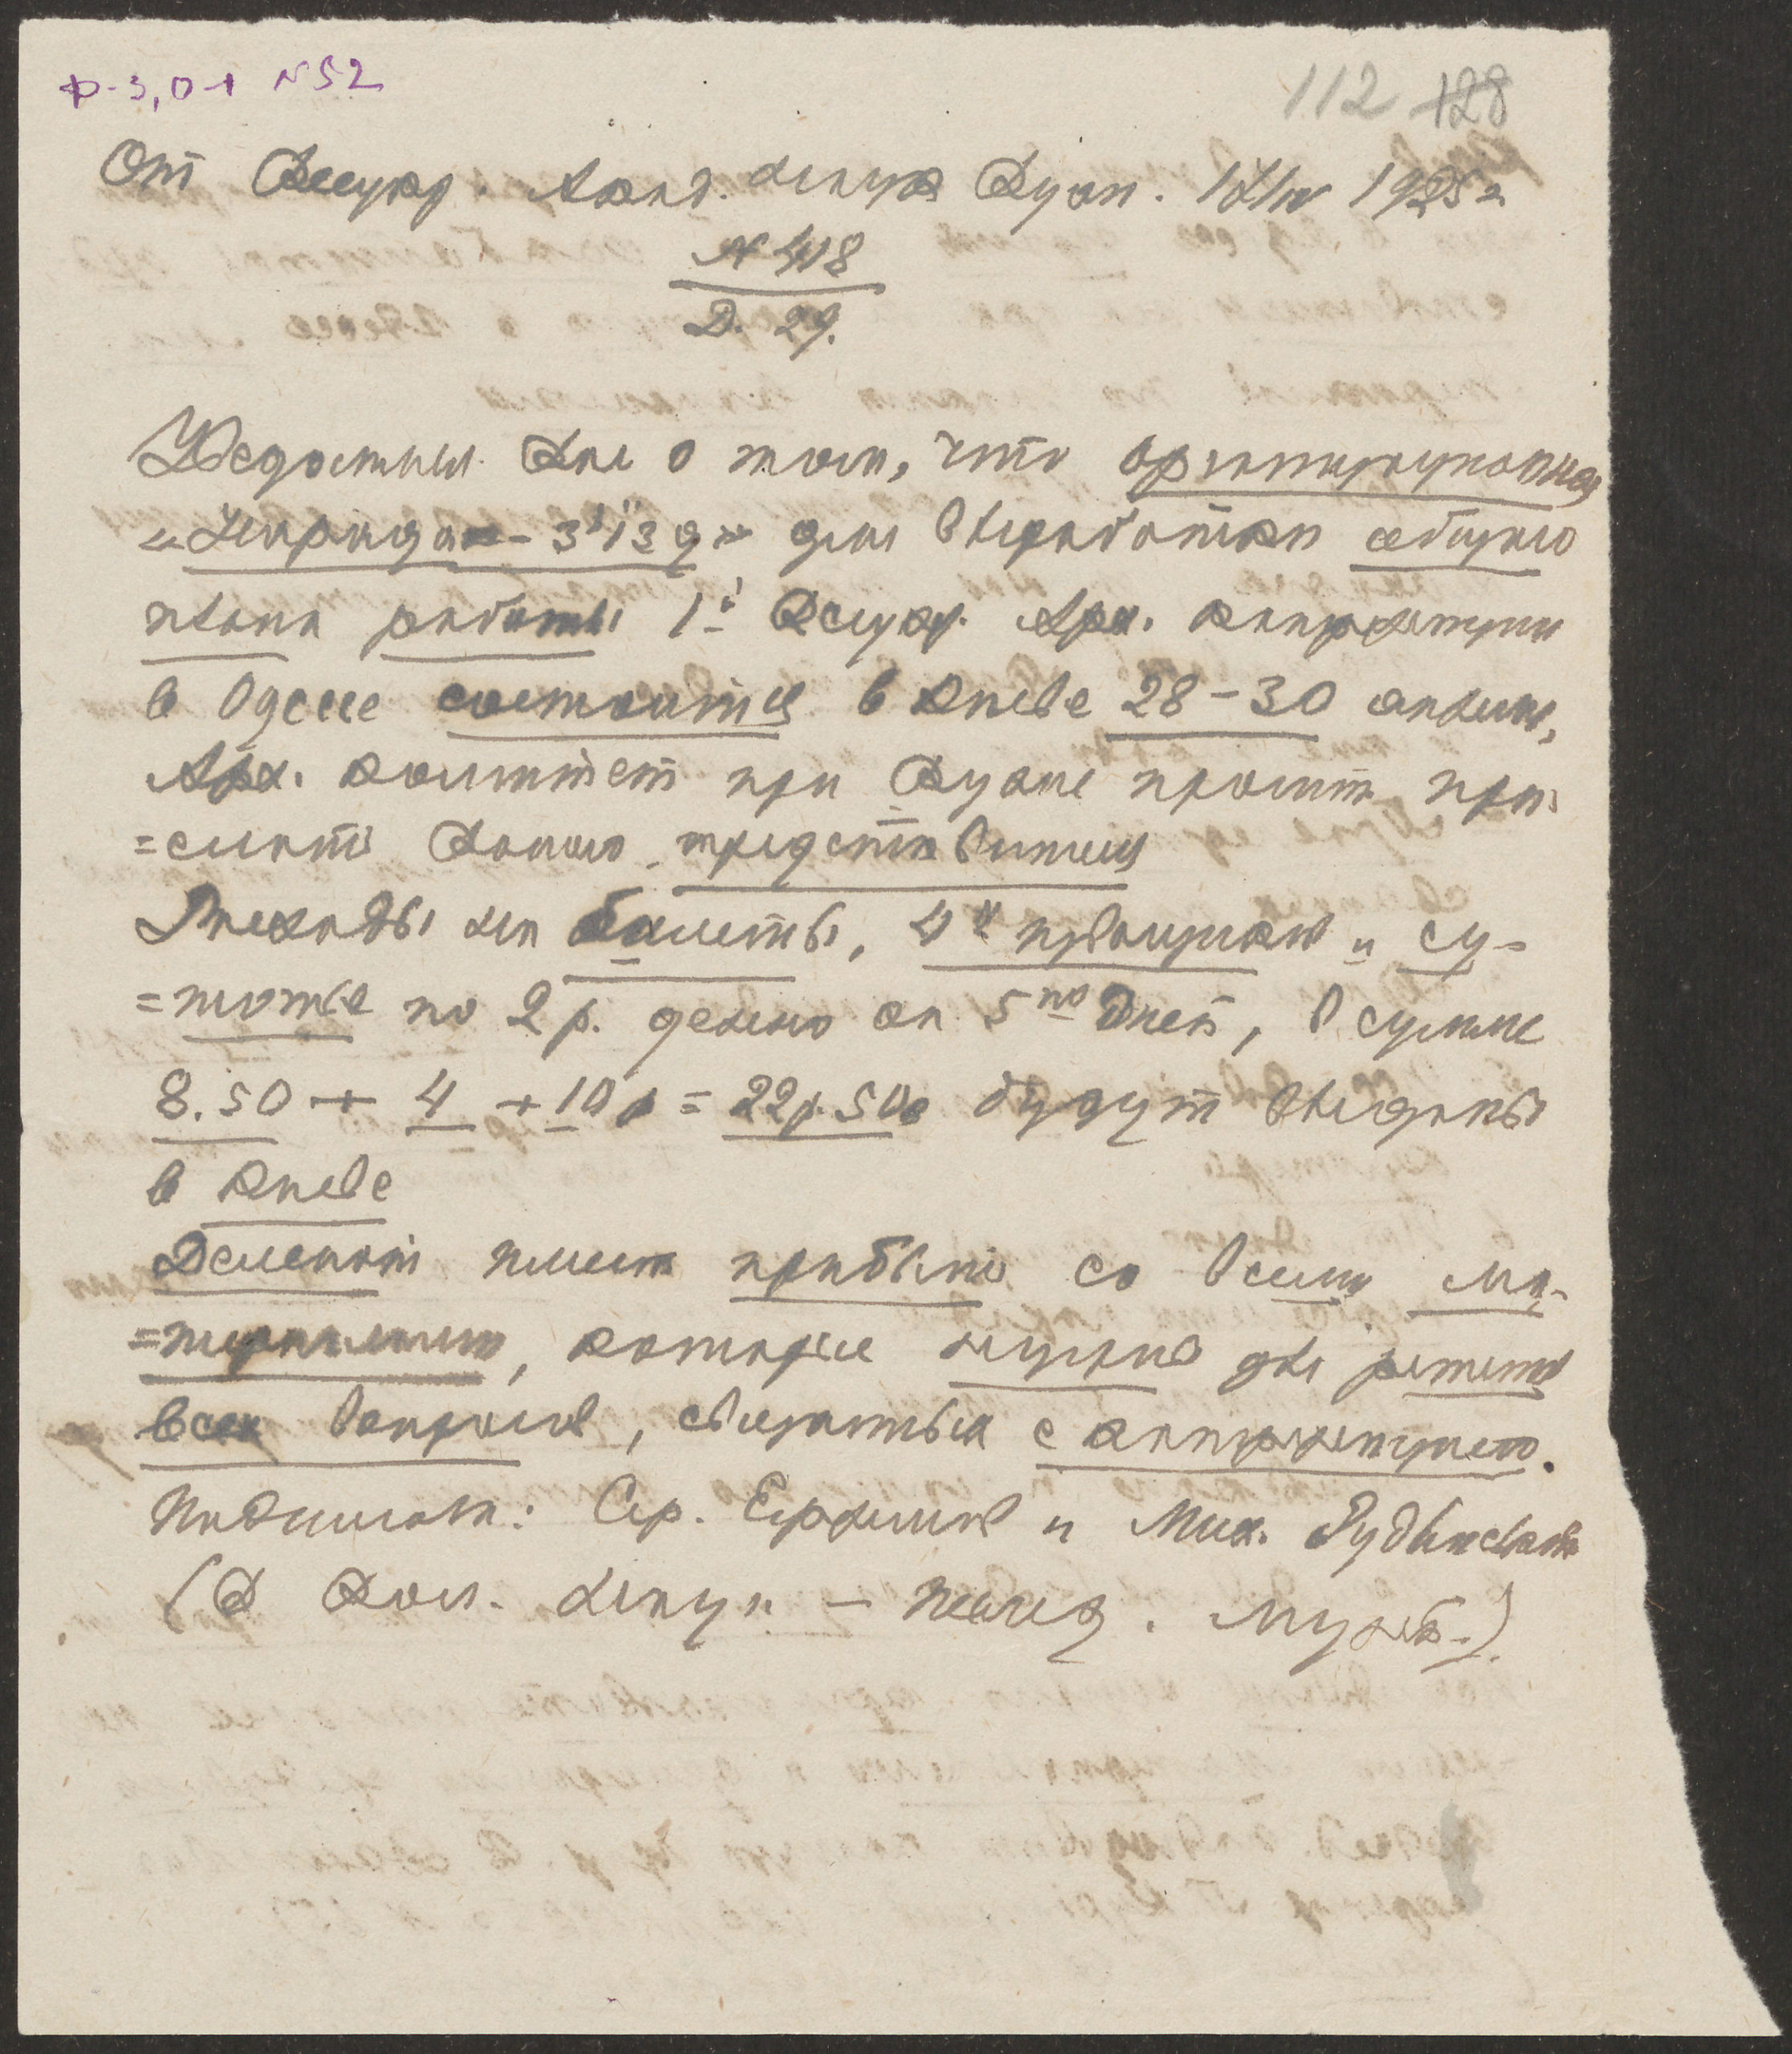 Ф-3, О-1 № 52
112 128
От Всеукр. Акад. наук Вуан. 1925 г
№ 418
Д. 29.
о том, что организационна
"Нарада - З'їзд" для выработки общего
плана работы 1й Всеукр. Арх. конференции
в Одессе состоится в Киеве 28-30 апреля,
Арх. комитет при Вуане просит при=
=слать Вашего представителя
Расходы на билеты, 4 и су-
=точные по 2 р. денно на 5 дней, в сумме
8.50 + 4 + 10 р = 22 р. 50 к будут выданы
в Киеве
Делегат имеет прибыть со всеми ма-
=териалами, которые нужны для решения
всех вопросов, связанных с конференциею.
Подписали: Сер. Ефремов и Мих. Рудынский